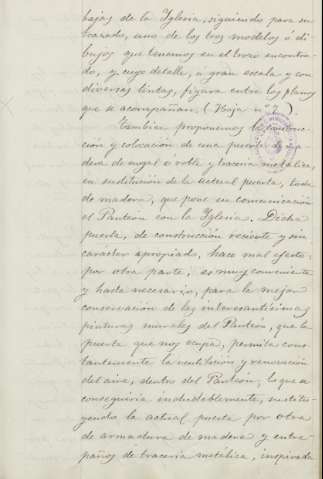 bajas de la Iglesia, siguiendo para su
trazado, uno de los tres modelos ó di-
bujos que tenemos en el trozo encontra-
do, y cuyo detalle, á gran escala y con
diversas tintas, figura entre los planos
que se acompañan. (Hoja nº 7)
Tambien proponemos la construc-
cion y colocación de una puerta de ma-
dera de nogal ó roble y tracería metálica,
en sustitución de la actual puerta, toda
de madera, que pone en comunicación
el Panteón con la Iglesia. Dicha
puerta, de construcción reciente y sin
carácter apropiado, hace mal efecto:
por otra parte, es muy conveniente
y hasta necesario, para la mejor
conservación de las interesantísimas
pinturas murales del Panteón, que la
puerta que nos ocupa, permita cons-
tantemente la ventilación y renovación
del aire, dentro del Panteón; lo que se
conseguiría indudablemente, sustitu-
yendo la actual puerta por otra
de armadura de madera y entre-
paños de tracería metálica, inspirada